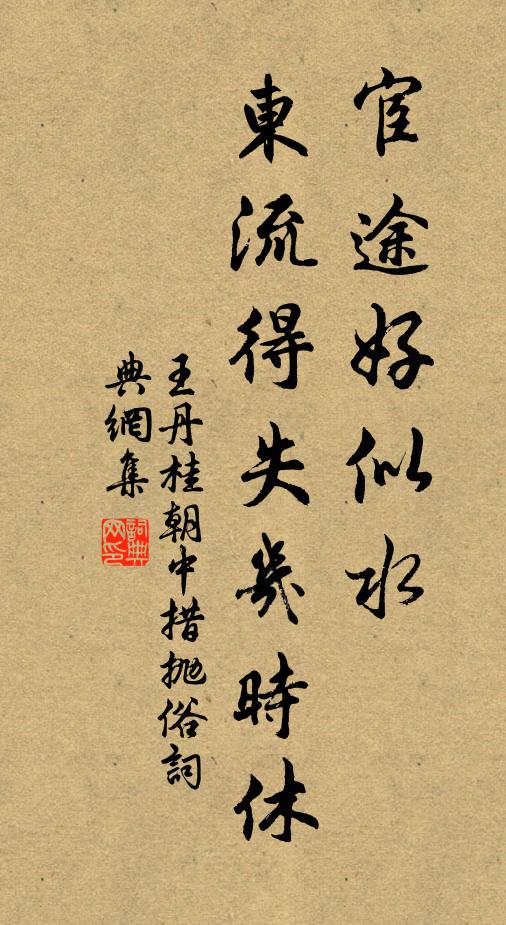 宦途好似水
東流得失幾時休
王丹桂朝中措拋俗詞
典網集
詞典
网印